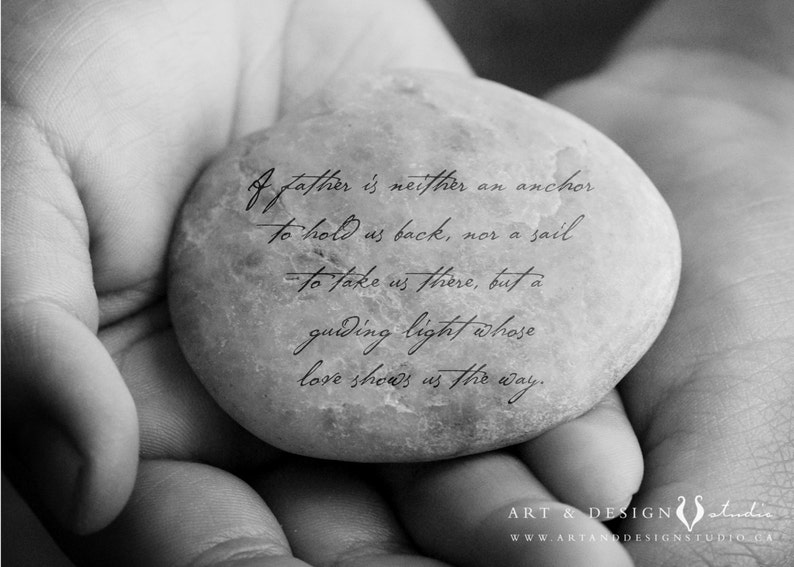 A father is neither an anchor
to hold us back, nor a sail
to take us there, but a
guiding light whose
love shows us the way.
ART & DESIGN studio
WWW.ARTANDDESIGNSTUDIO.CA